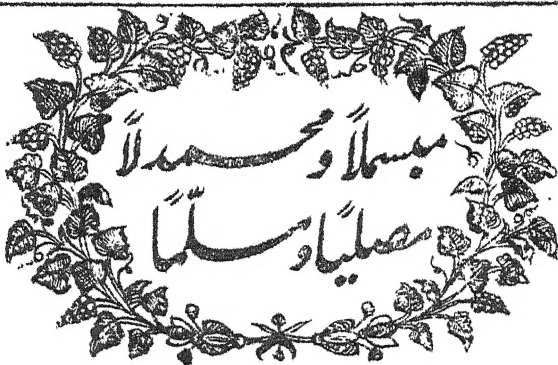 مبسملاً و محمدلاً
مصلیًا و مسلّمًا